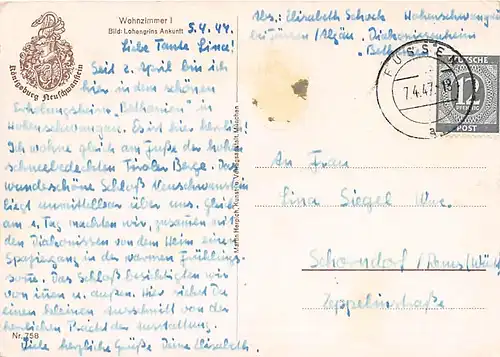 Wohnzimmer I
Bild: Lohengrins Ankunft
Königsburg Neuschwanstein
5.4.47.
Liebe Tante Lina!
Seit 2. April bin ich
hier in dem schönen
Erholungsheim "Bethanien" in
Hohenschwangau. Es ist hier herrlich!
Ich wohne gleich am Fuße der hohen
schneebedeckten Tiroler Berge. Das
wunderschöne Schloß Neuschwanstein
liegt unmittelbar über uns. Gleich
am 1. Tag machten wir, zusammen mit
den Diakonissen von dem Heim einen
Spaziergang in der warmen Frühlings-
sonne. Das Schloß besichtigten wir
von innen u. außen. Hier siehst Du
einen kleinen Ausschnitt von der
herrlichen Pracht der Ausstattung.
Viele herzliche Grüße Deine Elisabeth.
Nr. 758
Martin Herpich, Kunstverlagsanstalt, München
Abs.: Elisabeth Schock Hohenschwangau
bei Füssen/Allgäu, Diakonissenheim
"Bethanien"
FÜSSEN
7.4.47
a
DEUTSCHE
12
PFENNIG
POST
An Frau
Lina Siegel Wwe.
Schorndorf/Rems/Württ.
Zeppelinstraße